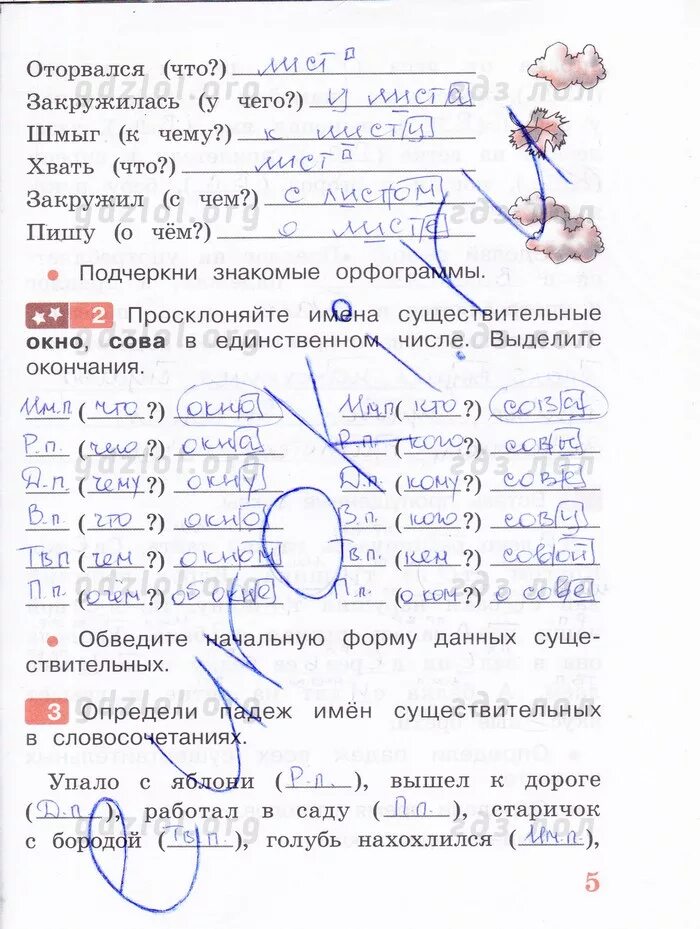 Оторвался (что?) лист
Закружилась (у чего?) у листа
Шмыг (к чему?) к листу
Хвать (что?) лист
Закружил (с чем?) с листом
Пишу (о чём?) о листе
• Подчеркни знакомые орфограммы.
2 Просклоняйте имена существительные
окно, сова в единственном числе. Выделите
окончания.
Им.п (что?) окно Им.п (кто?) сова
Р.п. (чего?) окна Р.п. (кого?) совы
Д.п. (чему?) окну Д.п. (кому?) сове
В.п. (что?) окно В.п. (кого?) сову
Тв.п (чем?) окном Тв.п. (кем?) совой
П.п. (о чем?) об окне П.п. (о ком?) о сове
• Обведите начальную форму данных суще-
ствительных.
3 Определи падеж имён существительных
в словосочетаниях.
Упало с яблони (Р.п.), вышел к дороге
(Д.п.), работал в саду (П.п.), старичок
с бородой (Тв.п.), голубь нахохлился (Им.п.),
5
gdzlol.org
гдз лол